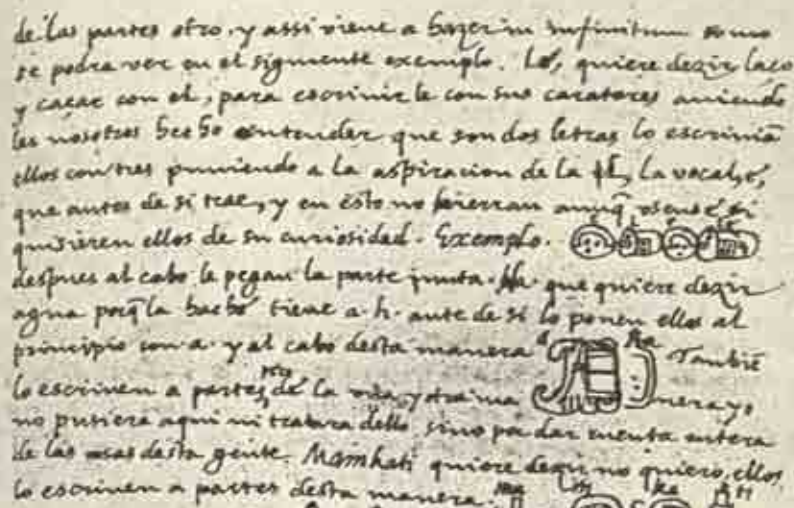 de las partes otro, y assi viene a hazer in infinitum como
se podra ver en el siguiente exemplo. Lé, quiere dezir laço
y caçar con el, para escrivirle con sus carateres aviendo
les nosotros hecho entender que son dos letras lo escrivian
ellos con tres puniendo a la aspiracion de la l, la vocal, é,
que antes de si trae, y en esto no hierran aunq̃ usense, si
quisieren ellos de su curiosidad. Exemplo.
despues al cabo le pegan la parte junta. Ha. que quiere dezir
agua porq̃ la hache tiene a. h. ante de si lo ponen ellos al
principio con a. y al cabo desta manera a ha Tambiē
lo escriven a partes, de la una y otra ma nera yo
no pusiera aqui ni tratara dello sino por dar cuenta entera
de las cosas desta gente. Mainkati quiere dezir no quiero, ellos
lo escriven a partes desta manera. ma i n ka ti